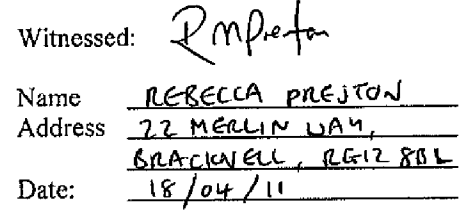 Witnessed: RMPreston
Name REBECCA PRESTON
Address 22 MERLIN WAY,
BRACKNELL, RG12 8BL
Date: 18/04/11